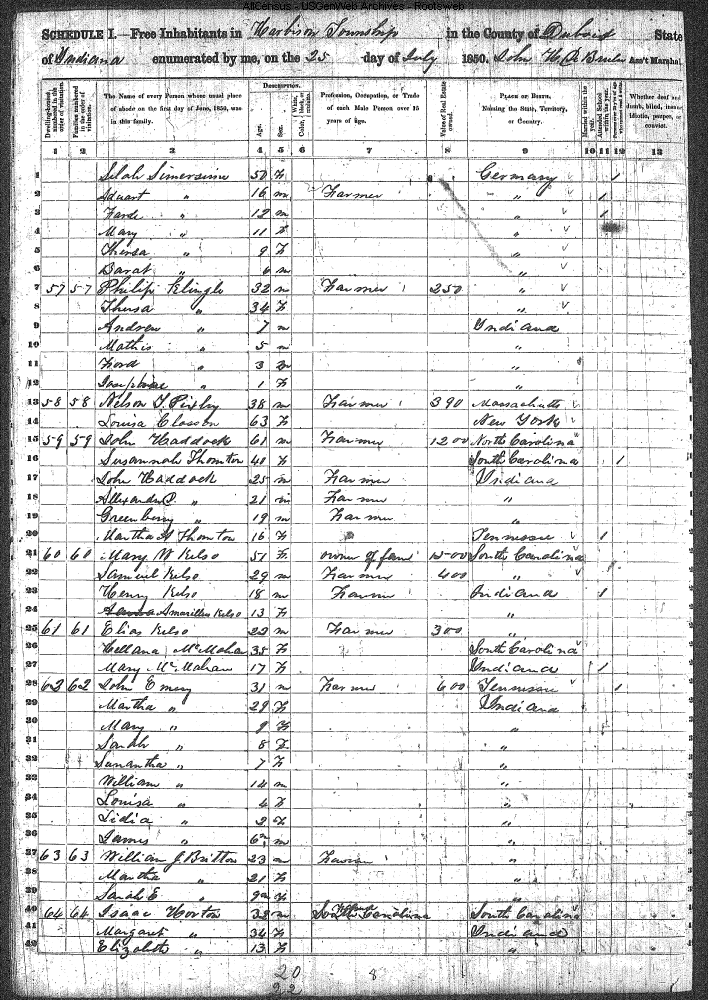 AllCensus - USGenWeb Archives - Rootsweb
SCHEDULE I.—Free Inhabitants in Harbison Township in the County of Dubois State
of Indiana enumerated by me, on the 25 day of July 1850. John Ass't Marshal.
Dwelling-houses numbered in the order of visitation. Families numbered in the order of visitation. The Name of every Person whose usual place of abode on the first day of June, 1850, was in this family. DESCRIPTION. Age. Sex. Color, White, black, or mulatto. Profession, Occupation, or Trade of each Male Person over 15 years of age. Value of Real Estate owned. PLACE OF BIRTH. Naming the State, Territory, or Country. Married within the year. Attended School within the year. Whether deaf and dumb, blind, insane, idiotic, pauper, or convict.
1 2 3 4 5 6 7 8 9 10 11 12 13
1 50 F Germany 1
2 " 16 m Farmer " 1
3 " 12 m " 1
4 Mary " 11 F "
5 Thersa " 9 F "
6 Barat " 6 m "
7 57 57 Philip Klingle 32 m Farmer 250 "
8 Thersa " 34 F "
9 Andrew " 7 m Indiana
10 Mathis " 5 m "
11 Ford " 3 m "
12 Josephine " 1 F "
13 58 58 Nelson T. Pixley 38 m Farmer 390 Massachutts
14 Louisa Closson 63 F New York
15 59 59 John Haddock 61 m Farmer 1200 North Carolina
16 Susannah Thornton 40 F South Carolina 1
17 John Haddock 25 m Farmer Indiana
18 Allexander P. " 21 m Farmer "
19 Greenberry " 19 m Farmer "
20 Martha A Thornton 16 F Tennessee 1
21 60 60 Mary W Kelso 51 F owner of farm 1500 South Carolina
22 Samuel Kelso 29 m Farmer 400 "
23 Henry Kelso 18 m Farmer Indiana 1
24 Amarilles Kelso 13 F "
25 61 61 Elias Kelso 22 m Farmer 300 "
26 McMahan 35 F South Carolina
27 Mary McMahan 17 F Indiana 1
28 62 62 John Emery 31 m Farmer 600 Tennessee 1
29 Martha " 29 F Indiana
30 Mary " 9 F "
31 Sarah " 8 F "
32 Samantha " 7 F "
33 William " 14 m "
34 Louisa " 4 F "
35 Lidia " 2 F "
36 James " 6 m "
37 63 63 William J Britton 23 m Farmer "
38 Martha " 21 F "
39 Sarah E " F "
40 64 64 Isaac Horton 32 m South Carolina South Carolina
41 Margaret " 34 F Indiana
42 Elizabeth " 13 F "
20 8
22